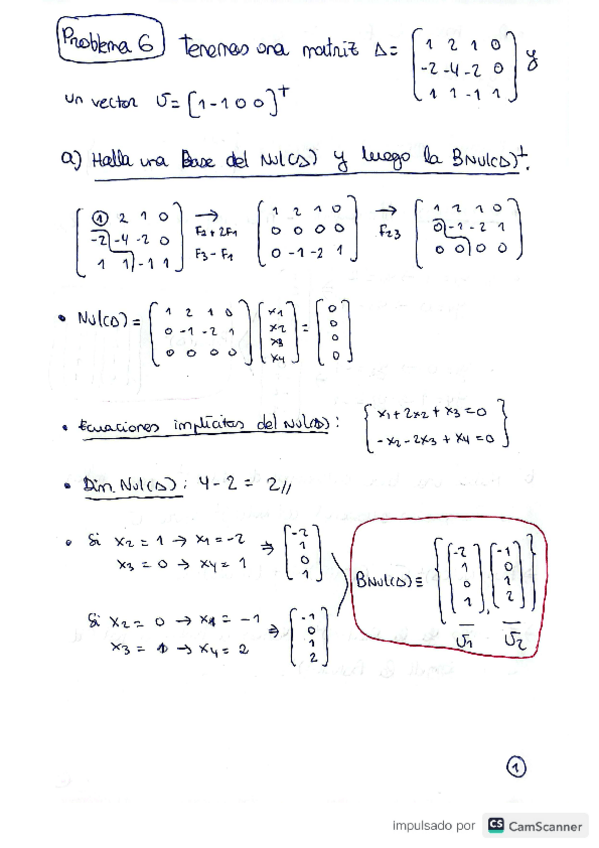 Problema 6 Tenemos una matriz A = [1 2 1 0; -2 -4 -2 0; 1 1 -1 1] y
un vector v = [1 -1 0 0]^t
a) Halla una Base del Nul(A) y luego la BNul(A)^⊥.
[1 2 1 0; -2 -4 -2 0; 1 1 -1 1] → F2+2F1 F3-F1 [1 2 1 0; 0 0 0 0; 0 -1 -2 1] → F23 [1 2 1 0; 0 -1 -2 1; 0 0 0 0]
• Nul(A) = [1 2 1 0; 0 -1 -2 1; 0 0 0 0] [x1; x2; x3; x4] = [0; 0; 0; 0]
• Ecuaciones implícitas del Nul(A): { x1 + 2x2 + x3 = 0; -x2 - 2x3 + x4 = 0 }
• Dim. Nul(A): 4 - 2 = 2//
• Si x2 = 1 → x1 = -2
x3 = 0 → x4 = 1 ⇒ [-2; 1; 0; 1]
BNul(A) ≡ { [-2; 1; 0; 1], [-1; 0; 1; 2] }
v1 v2
Si x2 = 0 → x1 = -1
x3 = 1 → x4 = 2 ⇒ [-1; 0; 1; 2]
1
impulsado por CS CamScanner